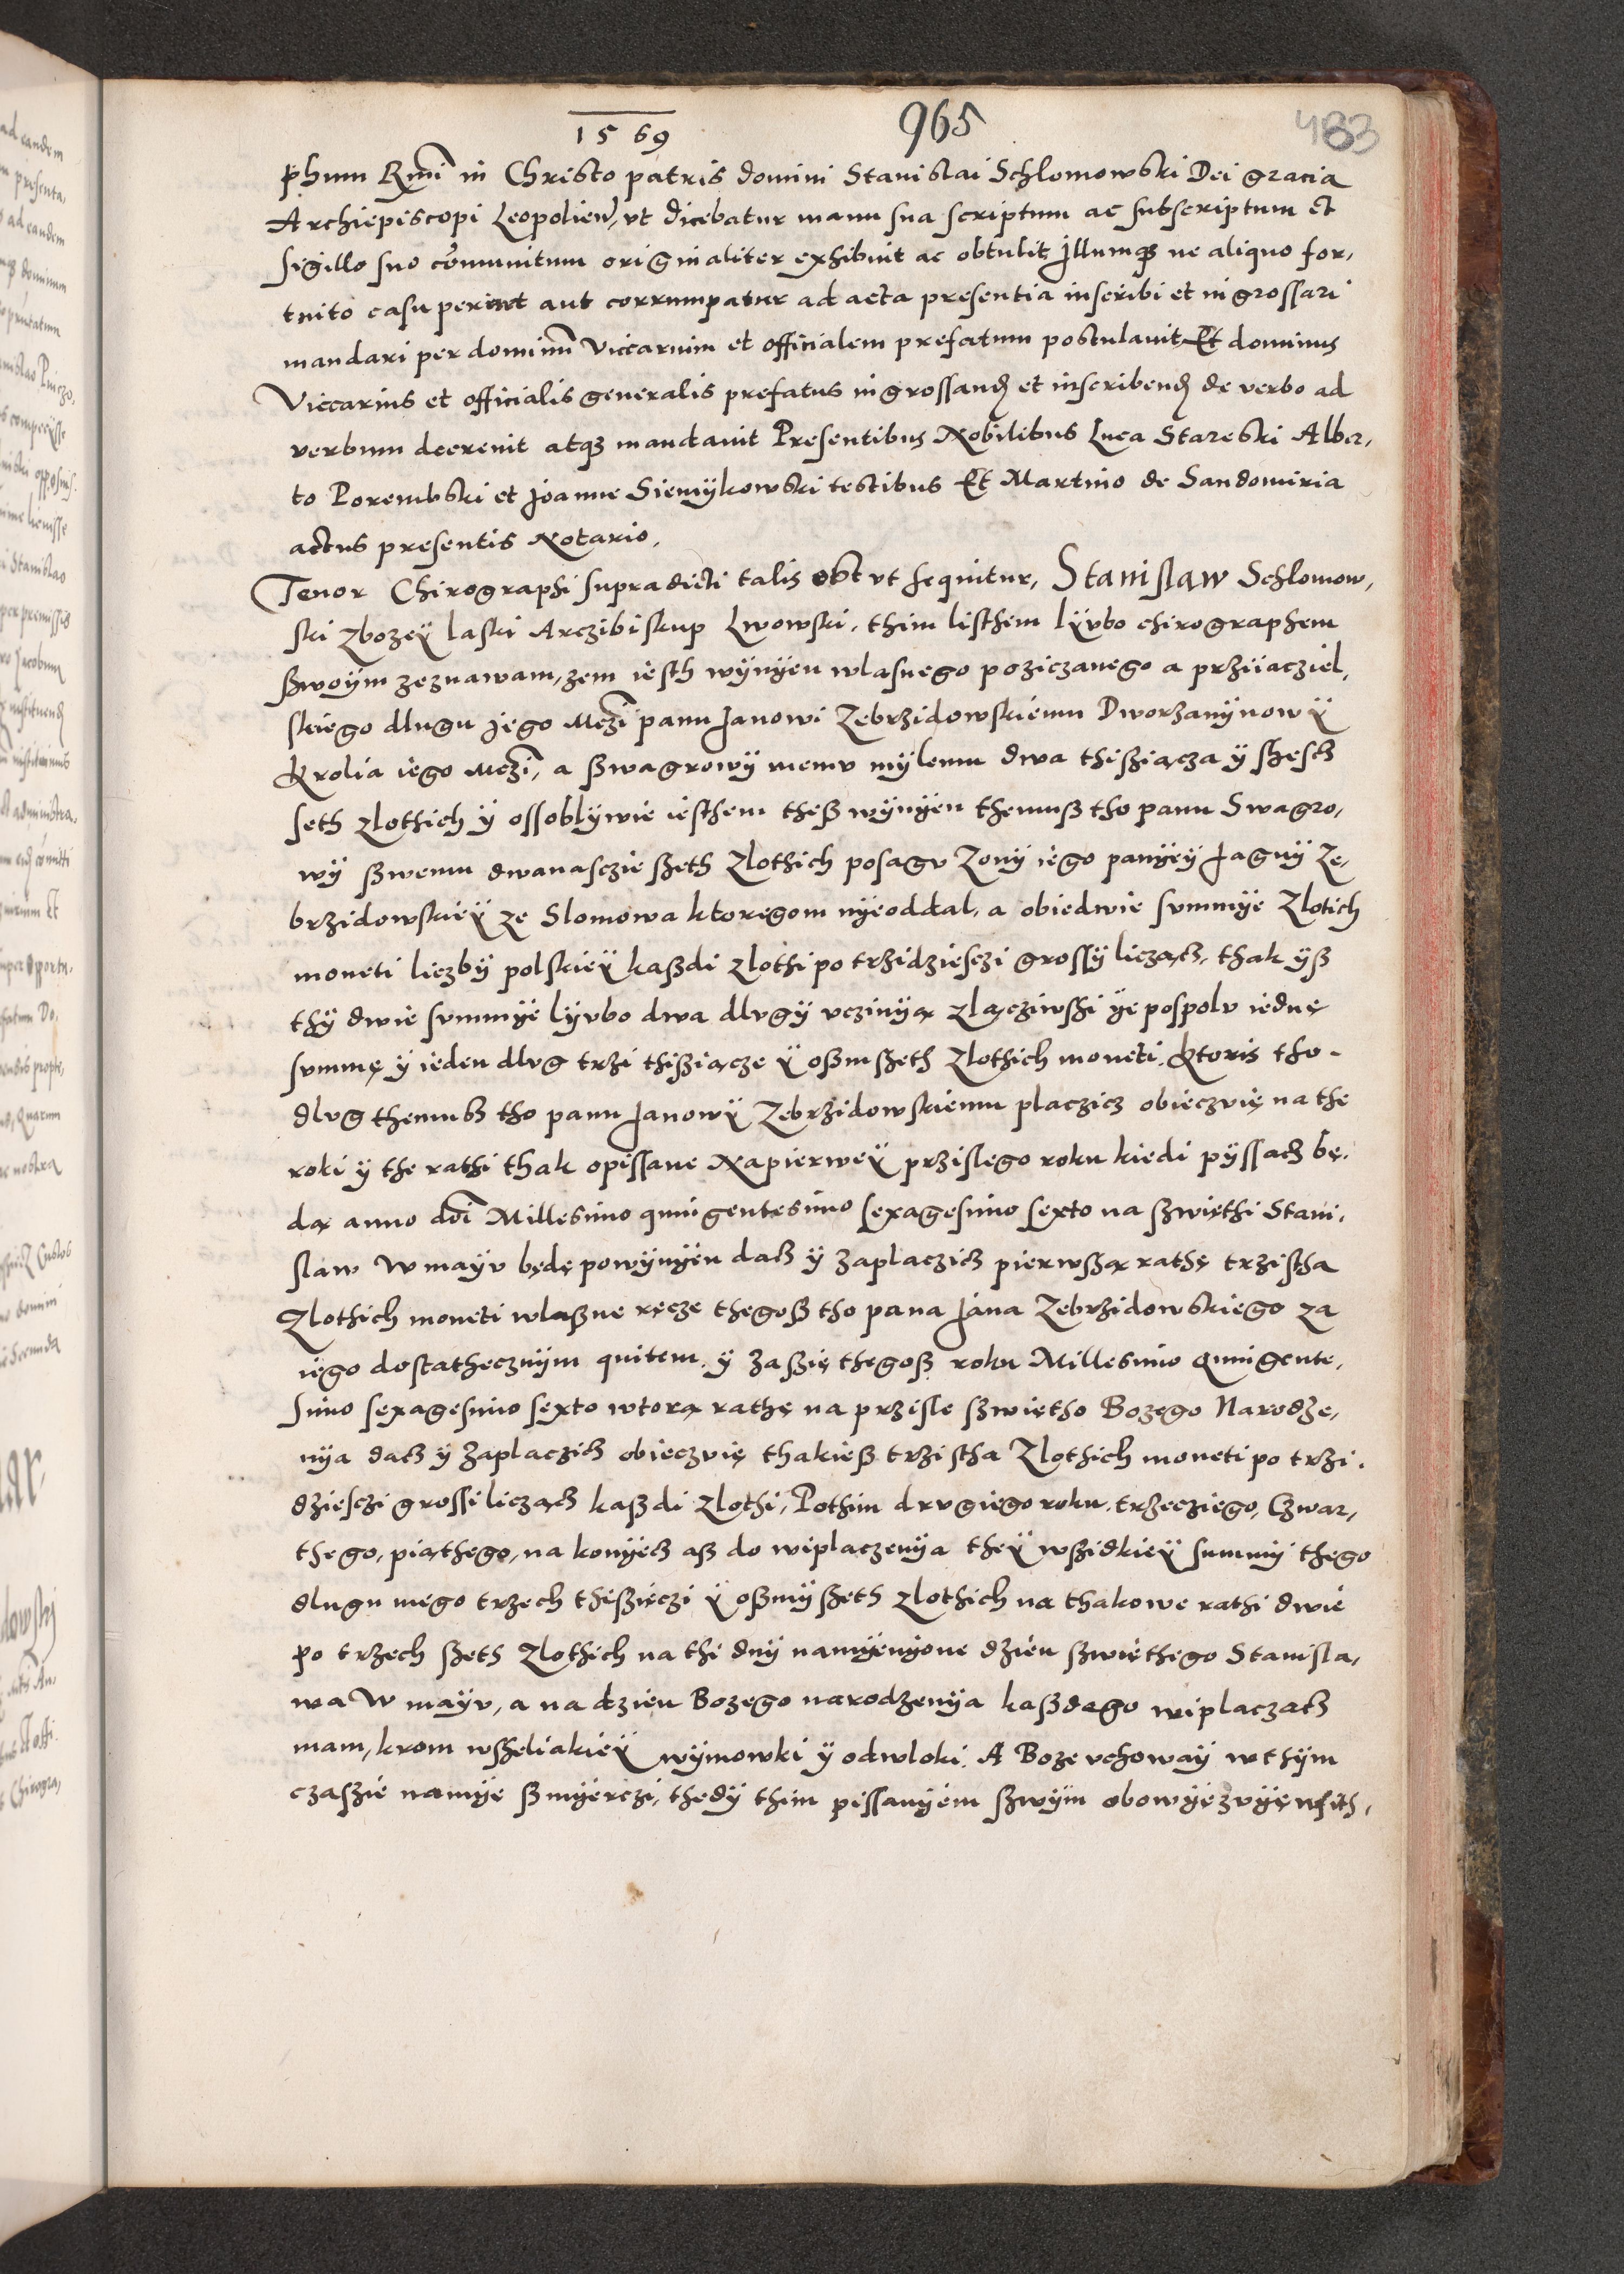 1569
965
483
phum Rmi in Christo patris domini Stanislai Schlomowski Dei gracia
Archiepiscopi Leopolien, vt dicebatur manu sua scriptum ac subscriptum et
sigillo suo comunitum originaliter exhibuit ac obtulit Illumq ne aliquo for,
tuito casu periret aut corrumpatur ad acta presentia inscribi et ingrossari
mandari per dominum Viccarium et officialem prefatum postulavit Et dominus
Viccarius et officialis generalis prefatus ingrossand et inscribend de verbo ad
verbum decrevit atq mandavit Presentibus Nobilibus Luca Starebski Alber,
to Porembski et Joanne Siemÿkowski testibus Et Martino de Sandomiria
actus presentis Notario,
Tenor Chirographi supradicti talis est vt sequitur, Stanislaw Schlomow,
ski zbozeÿ laski Arczibiskup Lwowski, thim listhem lÿvbo chirographem
swoÿm zeznawam, zem iesth wÿnÿen wlasnego poziczanego a prziiacziel,
skiego dlugu Jego Mczi panu Janowi Zebrzidowskiemu Dworzanÿnowÿ
Krolia iego Mczi, a ßwagrowÿ memv mÿlemu dwa thisziącza ÿ shescz
seth zlothich ÿ ossoblÿwie iesthem theß wÿnÿen themuß tho panu Swagro,
wÿ ßwemu dwanasczie sзeth Zlothich posagv Zonÿ iego panÿeÿ Jagnÿ Ze,
brzidowskieÿ ze Slomowa ktoregom nÿeoddal, a obiedwie svmmÿe Zlotich
moneti liczbÿ polskieÿ kaßdi zlothi po trzidziesczi grossÿ licząß, thak ÿß
thÿ dwie svmmÿe lÿvbo dwa dlvgÿ vczinÿą zlącziwßi ÿe pospolv iednę
svmmę ÿ ieden dlvg trzi thisziącze ÿ oßmszeth Zlothich moneti. Ktoris tho
dlvg themuß tho panu Janowÿ Zebrzidowskiemu placzicz obieczvię na the
roki ÿ the rathi thak opissane Napierweÿ przislego roku kiedi pÿssacz bę,
dą anno doi Millesimo quingentesimo sexagesimo sexto na szwięthi Stani,
slaw W mayv będę powÿnÿen dacz ÿ zaplaczicz pierwszą rathę trzistha
Zlothich moneti wlaßne ręcze thegoß tho pana Jana Zebrzidowskiego za
iego dostathecznÿm quitem. ÿ zaszię thegoß roku Millesimo Quingente,
simo sexagesimo sexto wtorą rathę na przisle szwiętho Bozego Narodze,
nÿa dacz ÿ zaplaczicz obieczvię thakieß trzistha Zlothich moneti po trzi,
dziesczi grossi licząß kaßdi zlothi, Pothim drvgiego roku, trzecziego, Czwar,
thego, piąthego, na konÿecz aß do wiplaczenÿa theÿ wszidkieÿ summÿ thego
dlugu mego trzech thiszięczi ÿ oßmÿszeth zlothich na thakowe rathi dwie
po trzech szeth Zlothich na thi dnÿ namÿenÿone dzien szwięthego Stanisla,
wa W mayv, a na dzien Bozego narodzenÿa kaßdego wiplaczacz
mam, krom wszeliakieÿ wÿmowki ÿ odwloki. A Boze vchoway wthÿm
czaszie namÿe szmÿerczi, thedÿ thim pissanÿem szwÿm obowÿęzvÿę